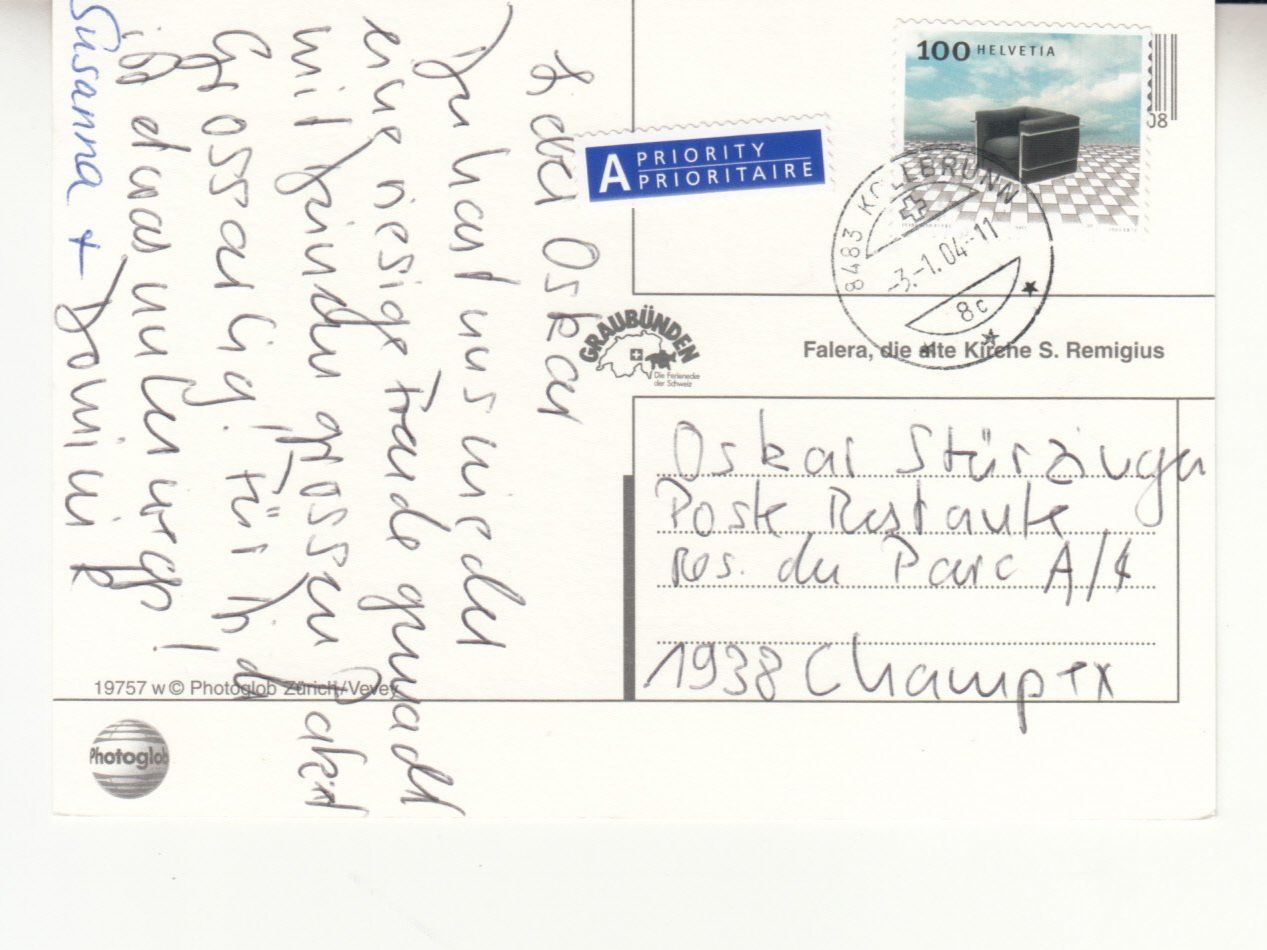 Lieber Oskar
Du hast uns wieder
eine riesige Freude gemacht
mit Deinem grossen Paket
Grossartig! Für Dich
ist etwas unterwegs!
Susanna + Dominik
A PRIORITY
PRIORITAIRE
100 HELVETIA
08
8483 KOLLBRUNN
-3.-1.04-11
8c
GRAUBÜNDEN
Die Ferienecke
der Schweiz
Falera, die alte Kirche S. Remigius
Oskar Stürzinger
Poste Restante
Res. du Parc A/4
1938 Champex
19757 w © Photoglob Zürich/Vevey
Photoglob